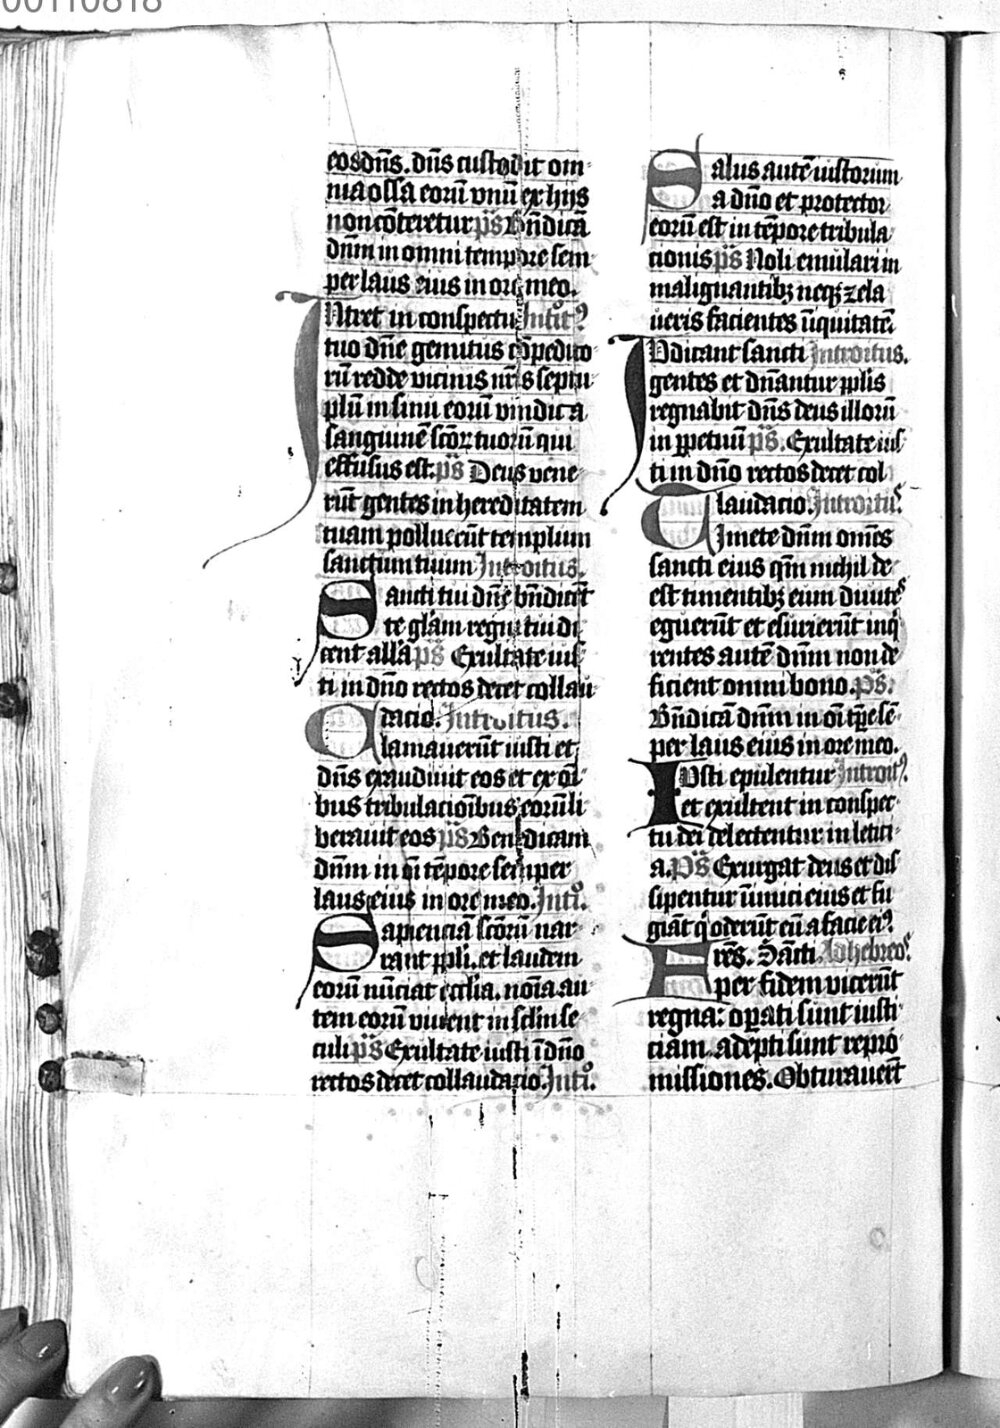 00110818
eos dn̄s. dn̄s custodit om
nia ossa eorū vnū ex hijs
non cōteretur ps̄ Bn̄dicā
dnm̄ in omni tempore sem
per laus eius in ore meo.
INtret in conspectu Introit⁹
tuo dn̄e gemitus cōpedito
rū redde vicinis nr̄is septu
plū in sinu eorū vindica
sanguinē scōꝝ tuorū qui
effusus est. ps̄ Deus vene
rūt gentes in hereditatem
tuam polluerūt templum
sanctum tuum Introitus.
Sancti tui dn̄e bn̄dicēt
te glām regni tui di
cent allā ps̄ Exultate ius
ti in dn̄o rectos decet collau
dacio. Introitus.
Clamauerūt iusti et
dn̄s exaudiuit eos et ex oī
bus tribulacioībus eorū li
berauit eos ps̄ Benedicam
dnm̄ in oī tēpore semper
laus eius in ore meo. Intr̄o.
Sapienciā scōrū nar
rant ppli. et laudem
eorū nūciat ecclia. noīa au
tem eorū viuent in sclm̄ se
culi ps̄ Exultate iusti ī dn̄o
rectos decet collaudacio. Intr̄o.
Salus autē iustorum
a dn̄o et protector
eorū est in tēpore tribula
cionis ps̄ Noli emulari in
malignantibꝫ neqꝫ zela
ueris facientes īiquitatē
IUdicant sancti Introitus.
gentes et dn̄antur pplīs
regnabit dn̄s deus illorū
in ꝑpetuū ps̄. Exultate ius
ti in dn̄o rectos decet col
laudacio. Introitus.
Timete dnm̄ omēs
sancti eius qm̄ nichil de
est timentibꝫ eum diuites
eguerūt et esurierūt inq̄
rentes autē dnm̄ non de
ficient omni bono. ps̄.
Bn̄dicā dnm̄ in oī tpe sē
per laus eius in ore meo.
IUsti epulentur Introit⁹.
et exultent in conspec
tu dei delectentur in letici
a. Ps̄ Exurgat deus et dis
sipentur īimici eius et fu
giāt q̄ oderūt eū a facie ei⁹
Frēs. Sācti Ad hebreos.
per fidem vicerūt
regna: oꝑati sunt iusti
ciam. adepti sunt repro
missiones. Obturauerūt